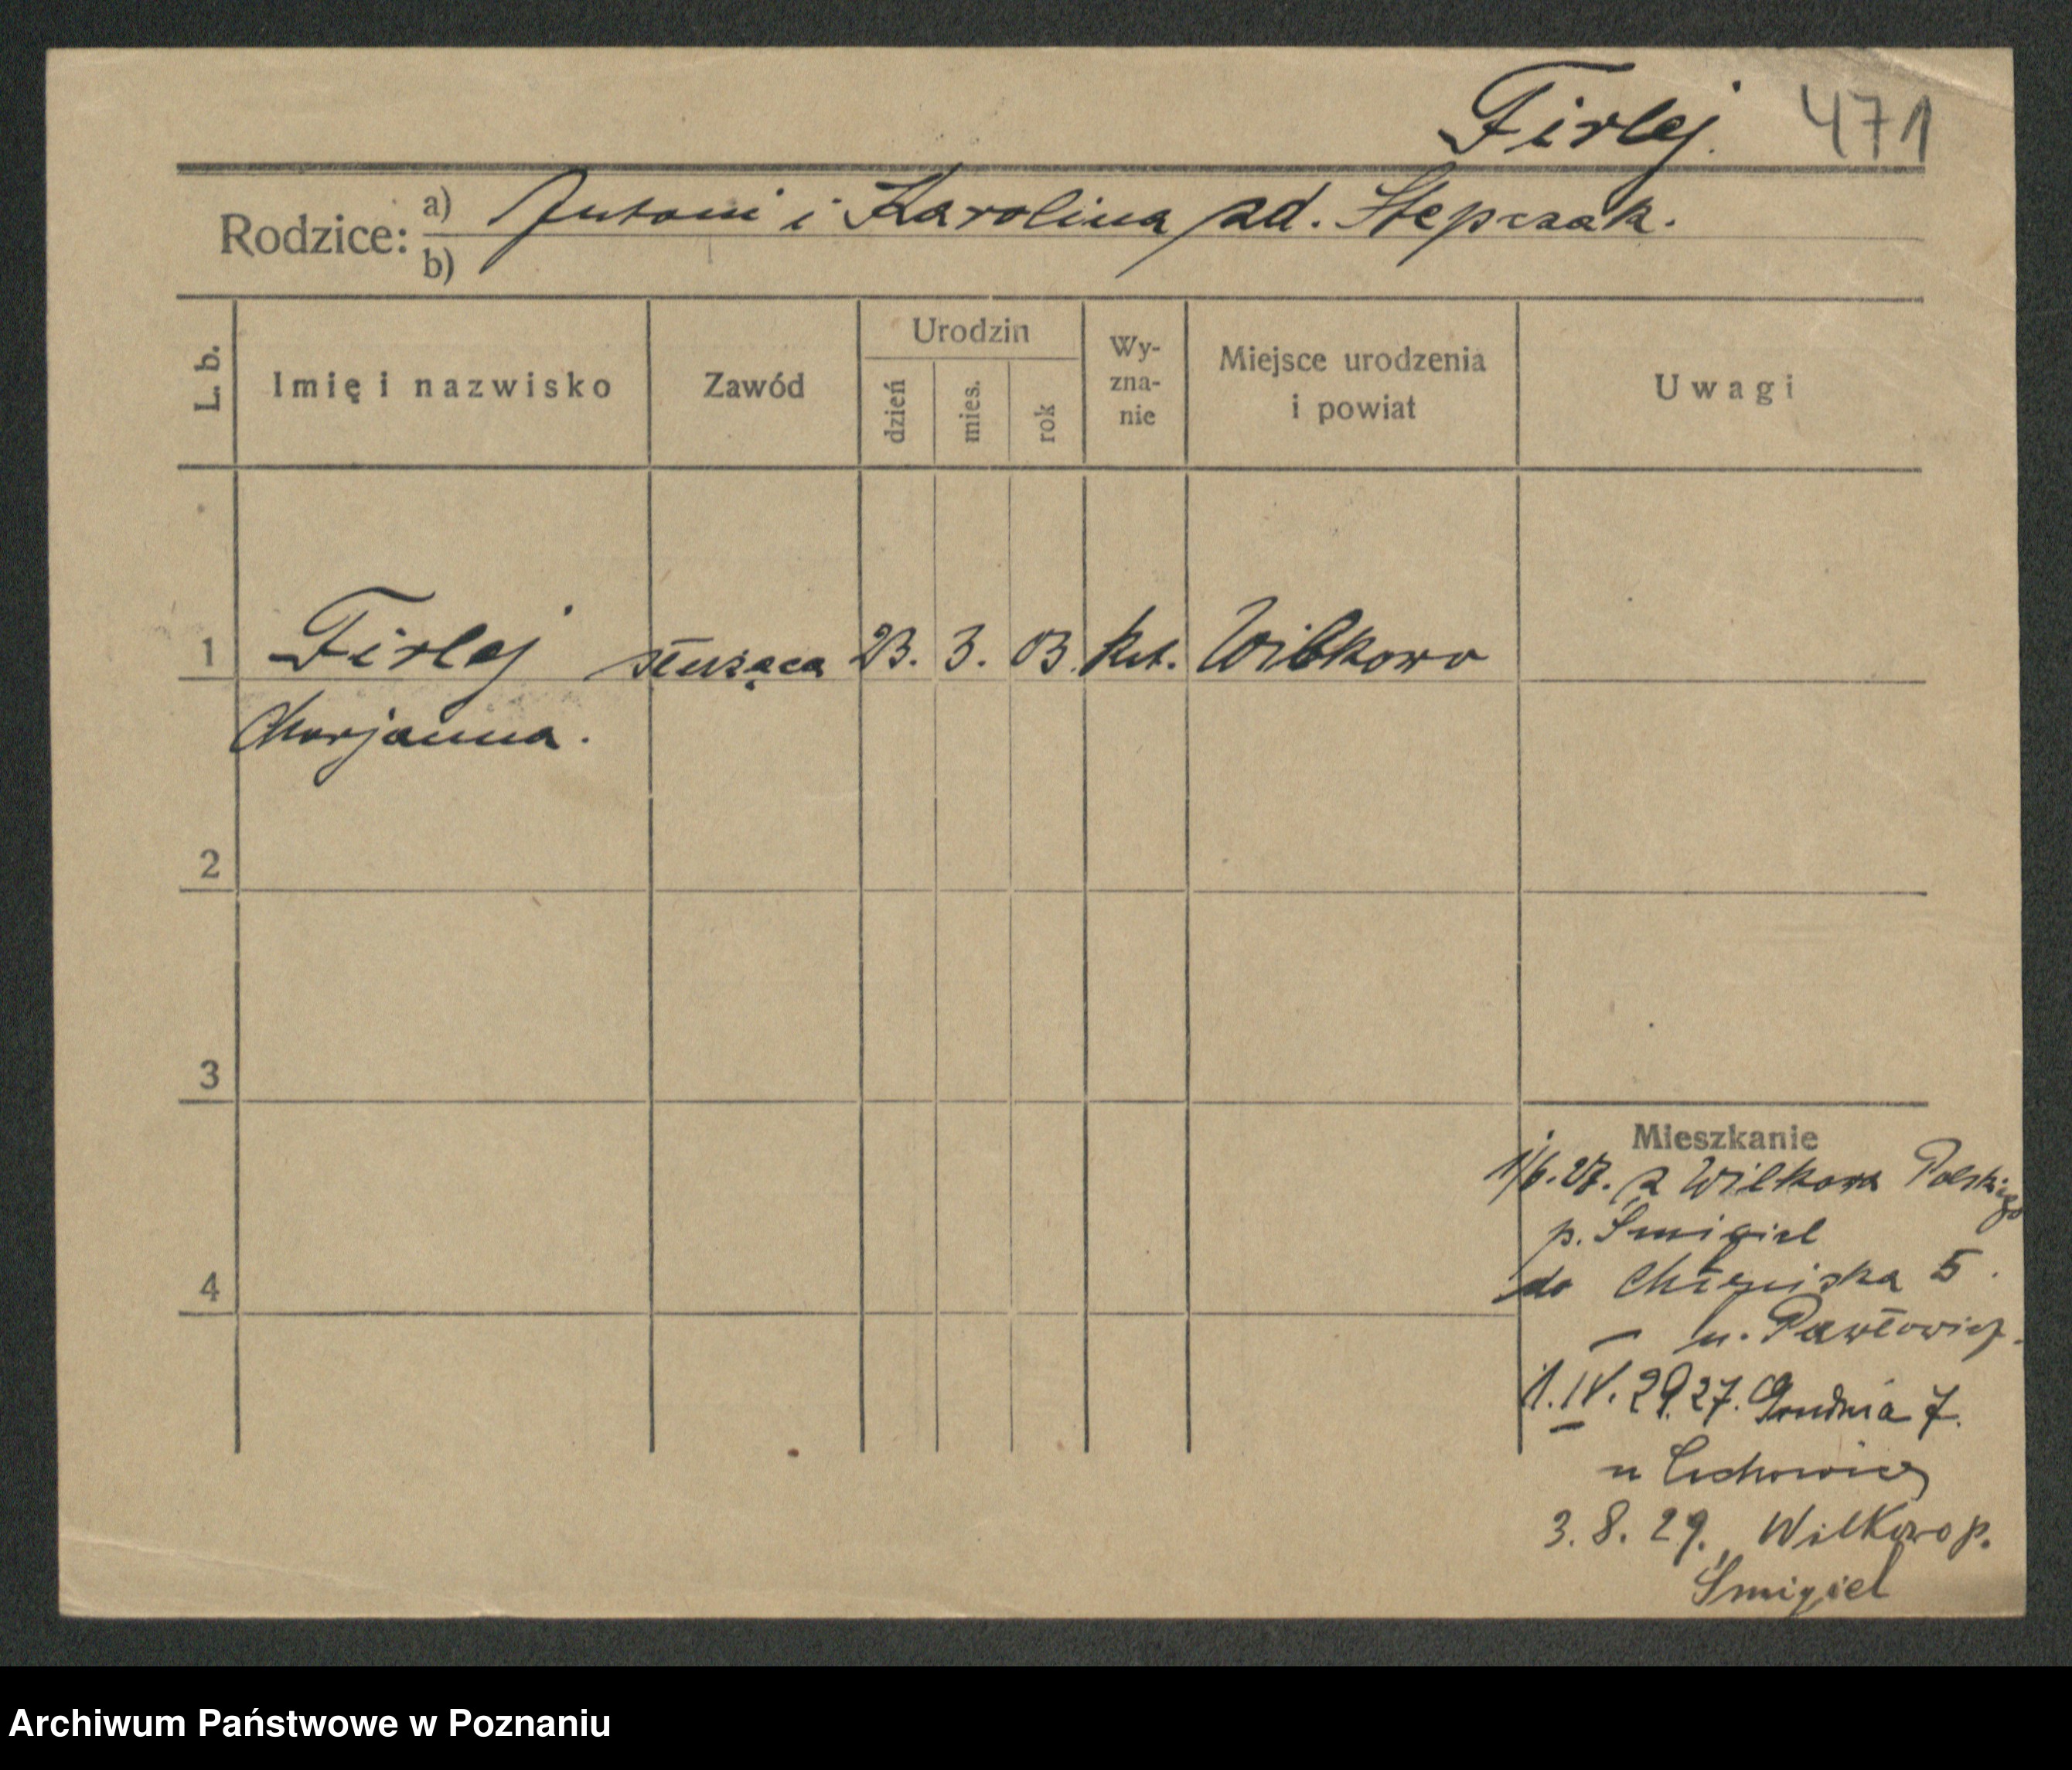 Firlej. 471
Rodzice: a) Antoni i Karolina zd. Stepczak.
b)
L. b. Imię i nazwisko Zawód Urodzin dzień mies. rok Wy-zna-nie Miejsce urodzenia i powiat Uwagi
1 Firlej służąca 23. 3. 03. kat. Wilkowo
Marjanna.
2
3
4
Mieszkanie
1/6.27. z Wilkowa Polskiego
p. Śmigiel
do 5.
– u. Pawłowicz.
1.IV.29. 27. Grudnia 7.
u
3.8.29. Wilkowo p.
Śmigiel
Archiwum Państwowe w Poznaniu